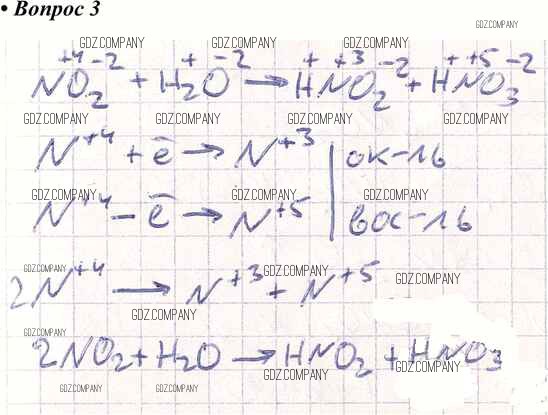 • Вопрос 3
GDZ.COMPANY
GDZ.COMPANY GDZ.COMPANY GDZ.COMPANY
+4 -2 + -2 + +3 -2 + +5 -2
NO2 + H2O → HNO2 + HNO3
GDZ.COMPANY GDZ.COMPANY GDZ.COMPANY GDZ.COMPANY
N+4 + ē → N+3 | ок-ль
GDZ.COMPANY GDZ.COMPANY GDZ.COMPANY
N+4 - ē → N+5 | вос-ль
GDZ.COMPANY GDZ.COMPANY GDZ.COMPANY
2N+4 → N+3 + N+5
GDZ.COMPANY
GDZ.COMPANY
2NO2 + H2O → HNO2 + HNO3
GDZ.COMPANY GDZ.COMPANY
GDZ.COMPANY GDZ.COMPANY